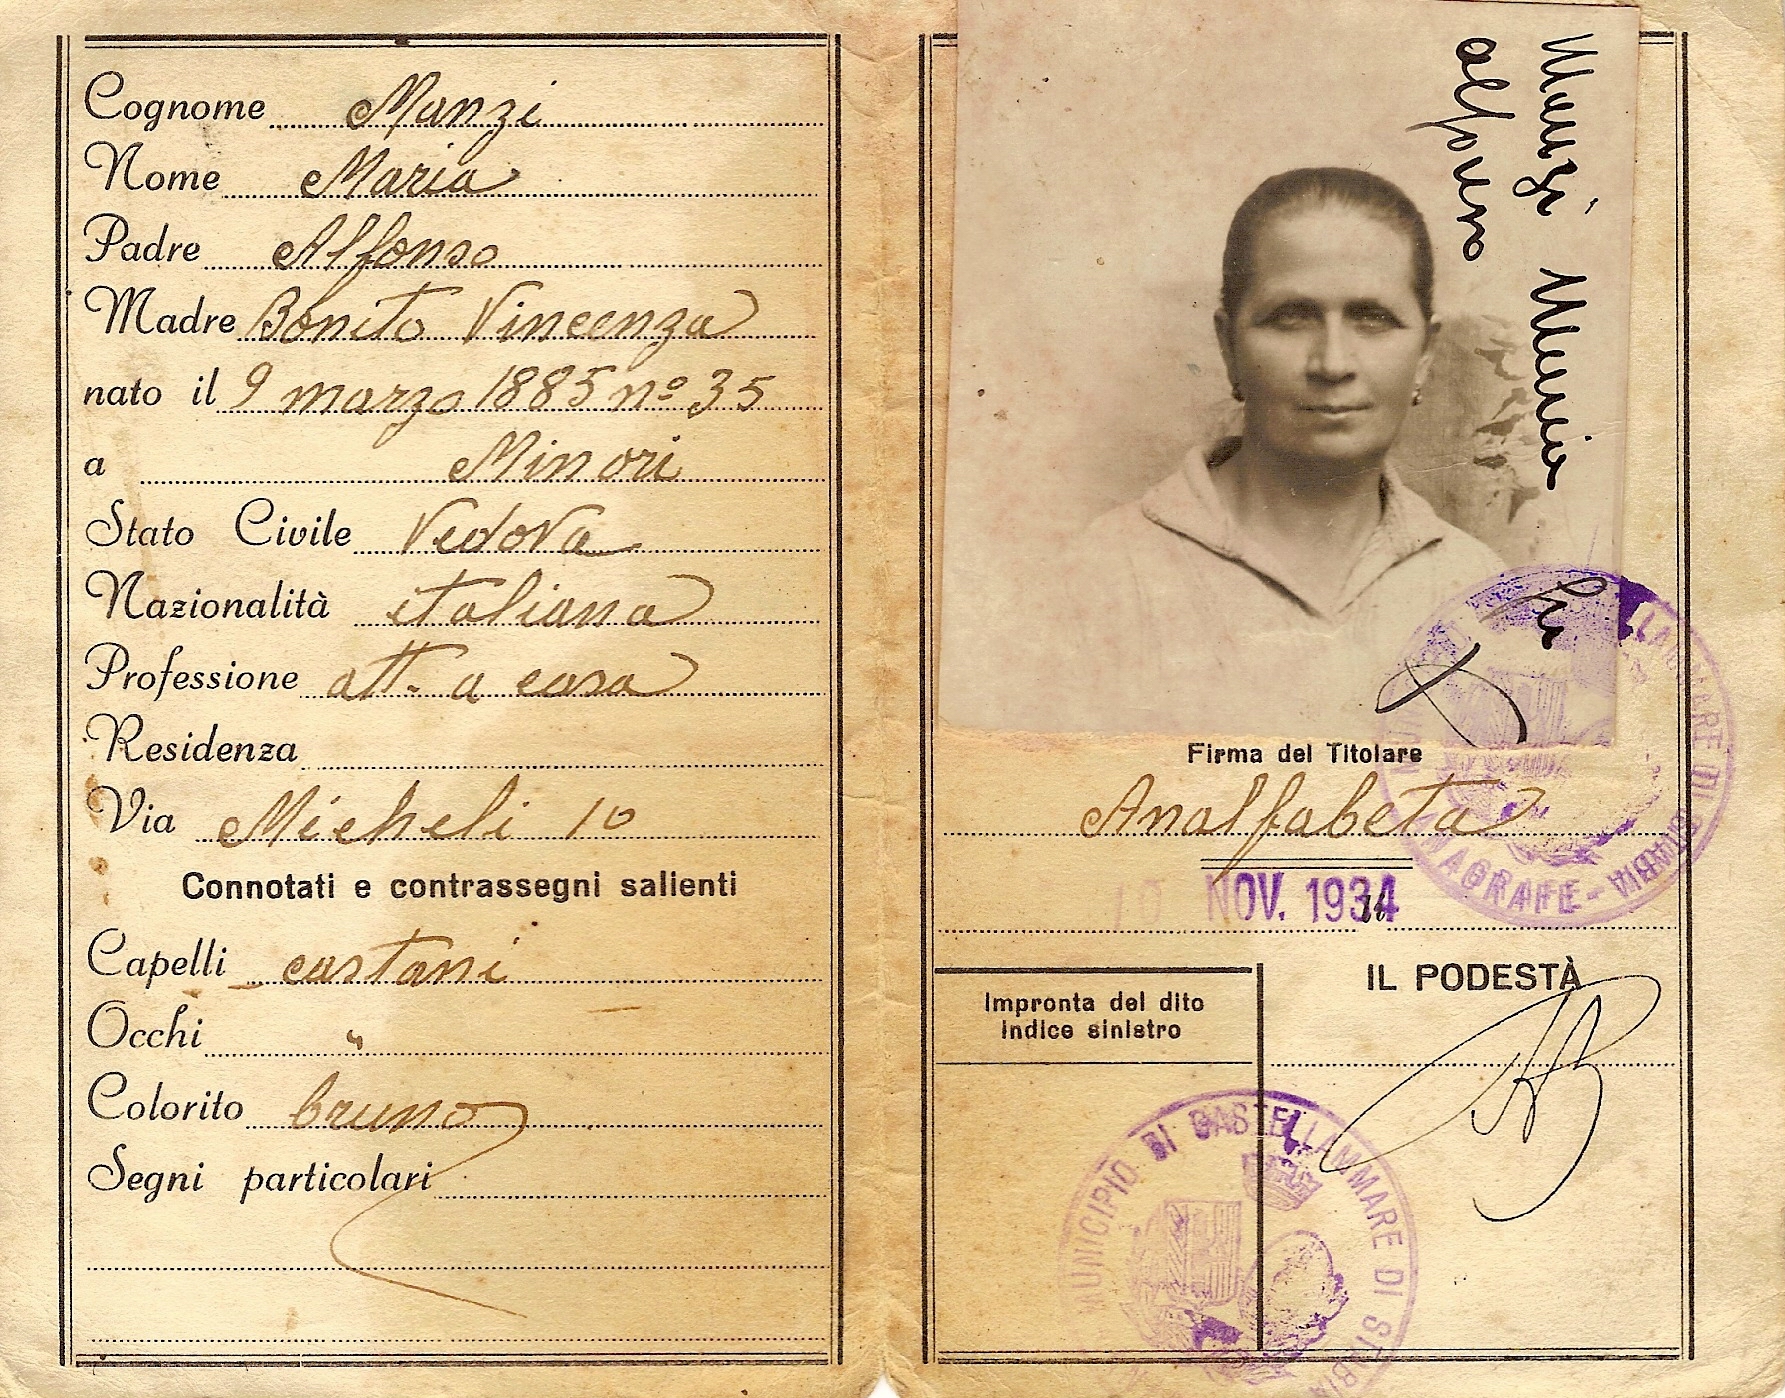 Cognome Manzi
Nome Maria
Padre Alfonso
Madre Bonito Vincenza
nato il 9 marzo 1885 nº 35
a Minori
Stato Civile Vedova
Nazionalità italiana
Professione att. a casa
Residenza
Via Micheli 10
Connotati e contrassegni salienti
Capelli castani
Occhi "
Colorito bruno
Segni particolari
Manzi Maria fu
Alfonso
Firma del Titolare
Analfabeta
10 NOV. 1934
IL PODESTÀ
Impronta del dito
indice sinistro
MUNICIPIO DI CASTELLAMMARE DI STABIA
ANAGRAFE
MUNICIPIO DI CASTELLAMMARE DI STABIA